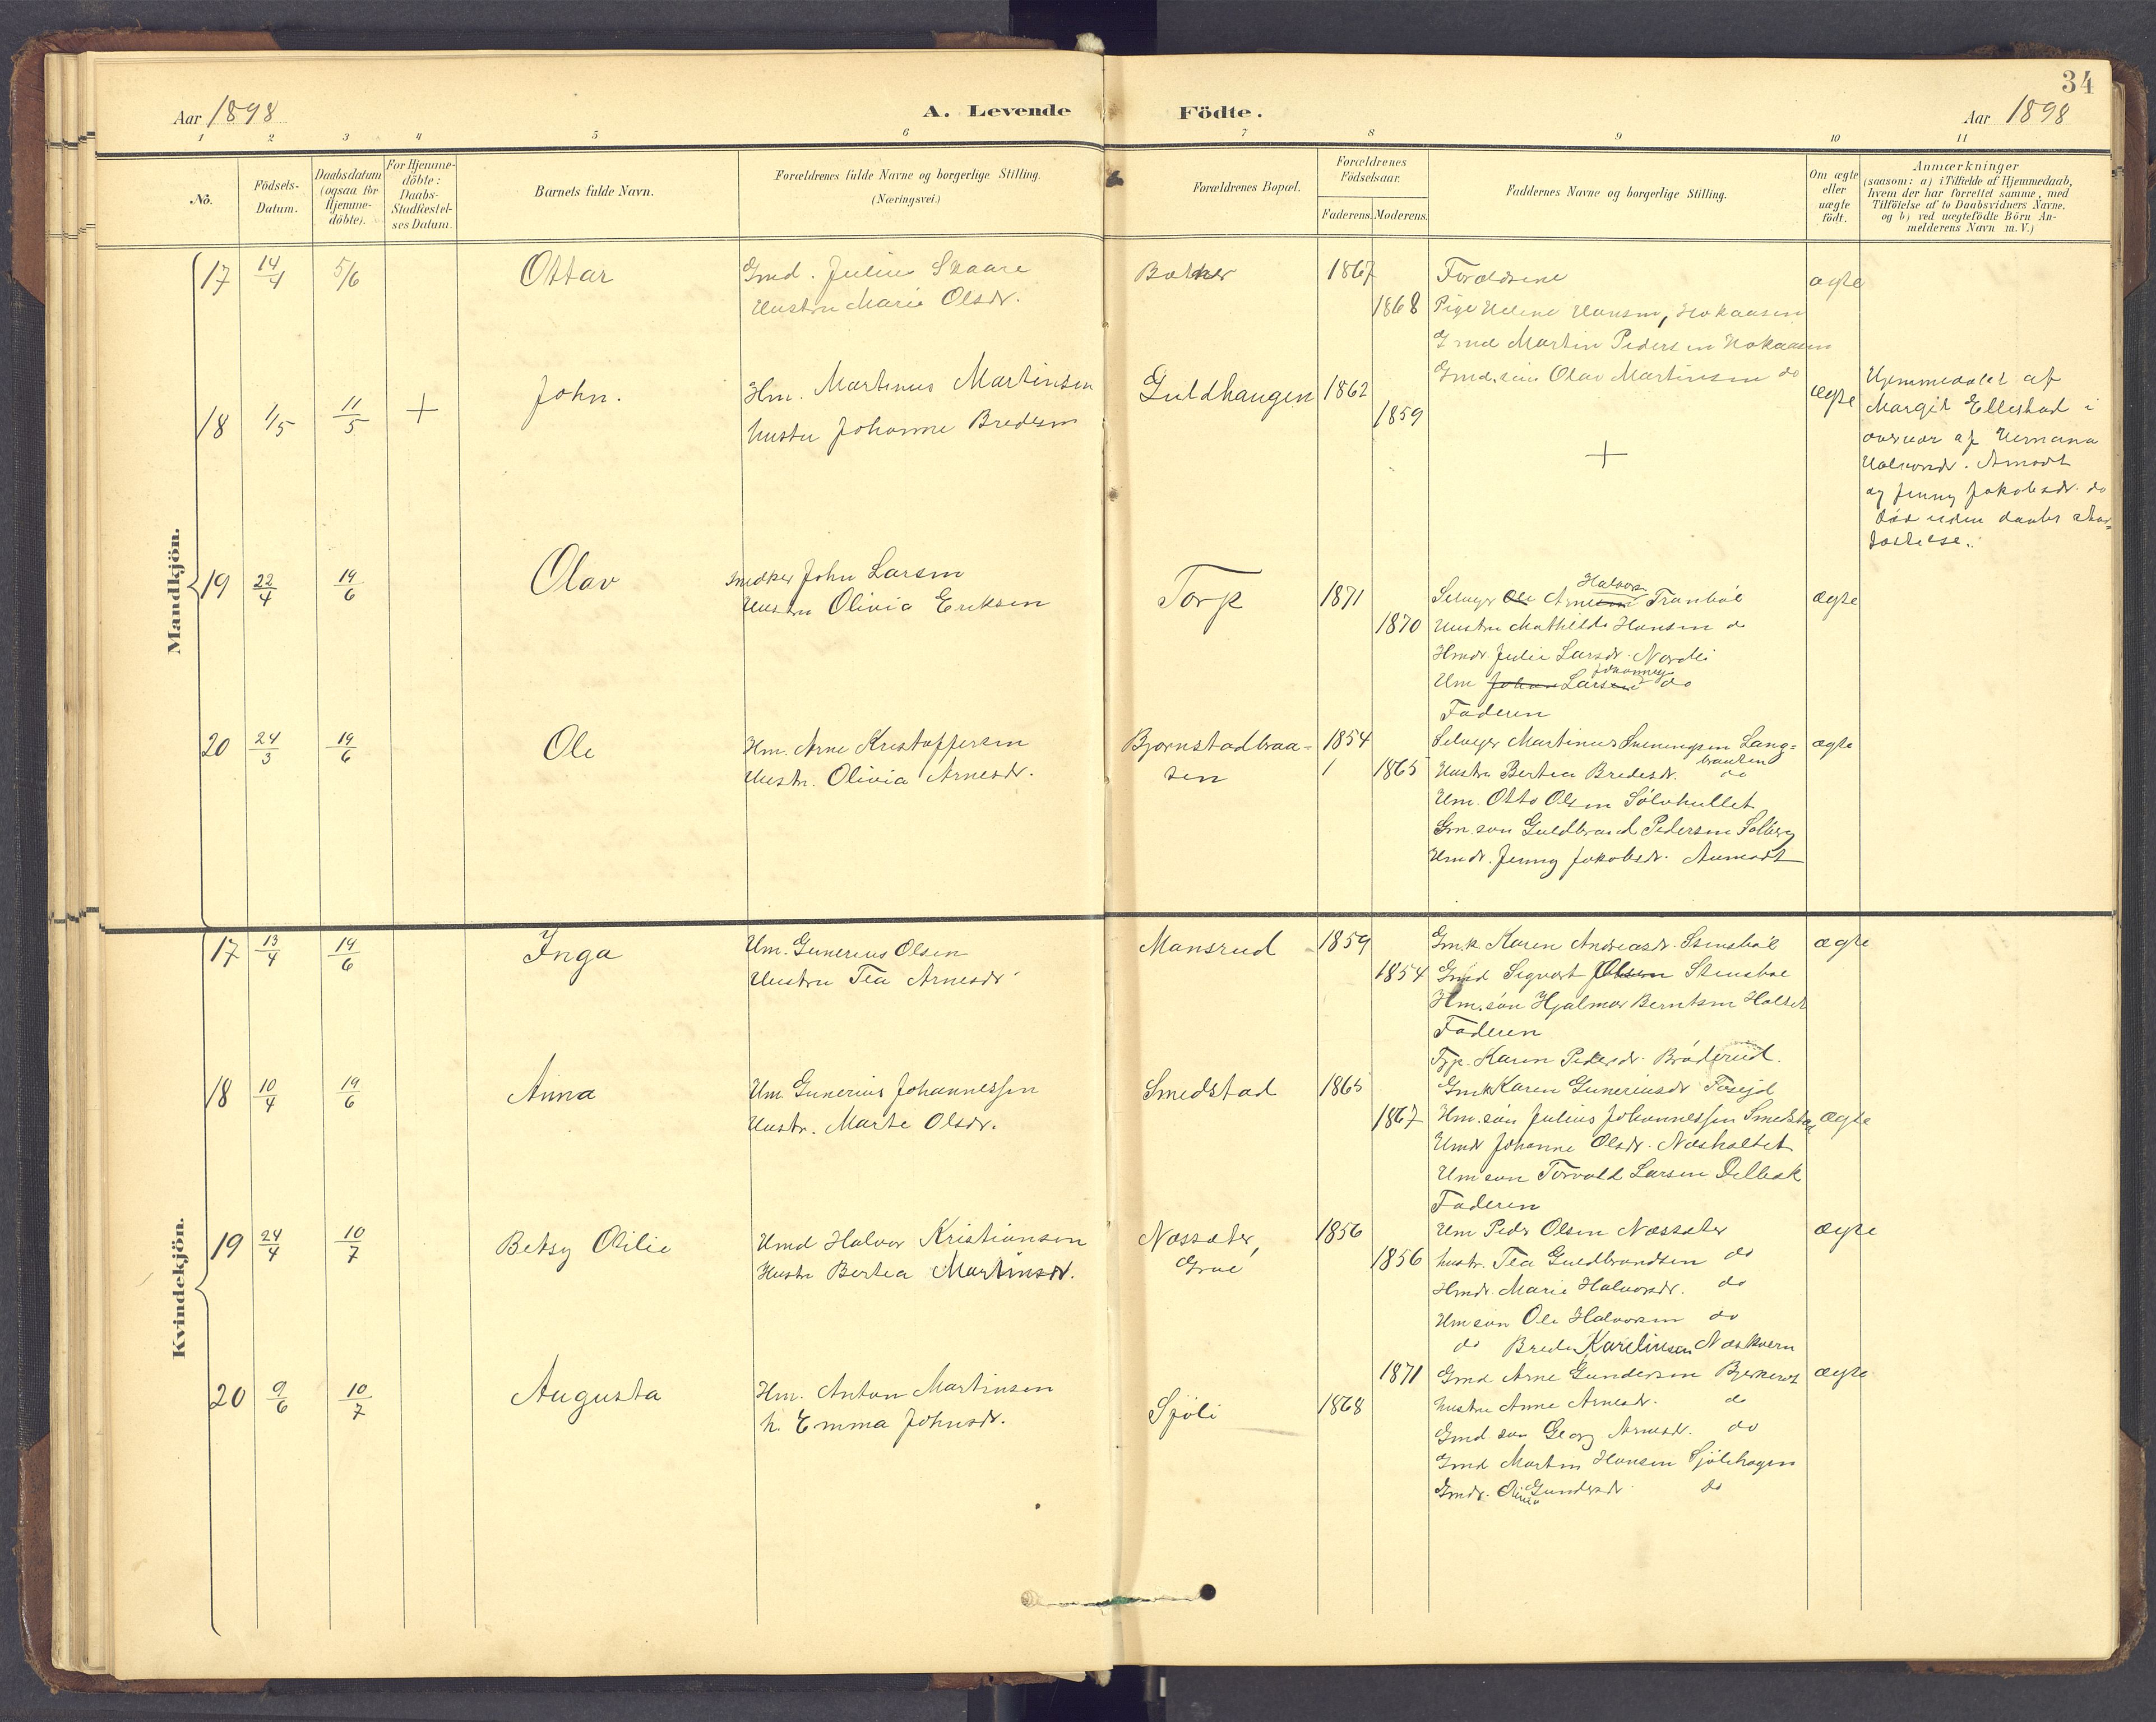 34
Aar 1898
A. Levende Födte.
Aar 1898
1 2 3 4 5 6 7 8 9 10 11
No.
Födsels-Datum.
Daabsdatum (ogsaa for Hjemme-döbte).
For Hjemme-döbte: Daabs-Stadfæstel-ses Datum.
Barnets fulde Navn.
Forældrenes fulde Navne og borgerlige Stilling.
(Næringsvei.)
Forældrenes Bopæl.
Forældrenes Födselsaar.
Faderens. Moderens.
Faddernes Navne og borgerlige Stilling.
Om ægte eller uægte födt.
Anmærkninger
(saasom: a) i Tilfælde af Hjemmedaab,
hvem der har forrettet samme, med
Tilföielse af to Daabsvidners Navne.
og b) ved uægtefödte Börn An-
melderens Navn m. V.)
Mandkjön.
17 14/4 5/6 Ottar
Gmd. Julius Skaare
Hustru Marie Olsdr.
1867
1868
Forældrene
Pige Helene Hansen, Hokaasen
Gmd Martin Pedersen Hokaasen
Gmd. søn Olav Martinsen do
ægte
18 1/5 11/5 + John.
Hm. Martinus Martinsen
hustru Johanne Bredesen
Guldhaugen
1862
1859
+
ægte
Hjemmedøbt af
Margit Ellestad i
overvær af Hermana
Halvorsdr. Amodt
og Jenny Jakobsdr. do
Død uden daabs stad-
fæstelse.
19 22/4 19/6 Olav
Snedker John Larsen
Hustru Olivia Eriksen
Torp
1871
1870
Selveger Ole Arnesen Halvorsen Tranbøl
Hustru Mathilde Hansen do
Hmdr. Julie Larsdr. Nordli
Hm Johan Larsen Johannes do
Faderen
ægte
20 24/3 19/6 Ole
Hm. Arne Kristoffersen
Hustr. Olivia Arnesdr.
Bjørnstadbraa-
ten
1854
1865
Selveger Martinus Sveningsen Lang-
braaten
Hustru Bertea Bredesdr. do
Hm. Otto Olsen Sølvhullet
Gm. søn Guldbrand Pedersen Solberg
Hmdr. Jenny Jakobsdr. Aamodt
ægte
Kvindekjön.
17 13/4 19/6 Inga
Hm. Gunerius Olsen
Hustru Tea Arnesdr.
Mansrud
1859
1854
Gmk. Karen Andreasdr. Stensbøl
Gmd Sigvart Olsen Stensbøl
Hm. søn Hjalmar Berntsen Holset
Faderen
Tjp. Karen Pedersdr. Brøderud.
ægte
18 10/4 19/6 Anna
Hm Gunerius Johannessen
Hustr. Marte Olsdr.
Smedstad
1865
1867
Gmk Karen Guneriusdr
Hm. søn Julius Johannessen Smedstad
Hmdr Johanne Olsdr. Næsholtet
Hm søn Torvald Larsen
Faderen
ægte
19 24/4 10/7 Betsy Otilie
Hmd Halvor Kristiansen
Hustr Bertea Martinsdr.
Næssæter,
Grue
1856
1856
Hm Peder Olsen Næssæter
hustr. Tea Guldbrandsen do
Hmdr. Marie Halvorsdr. do
Hm søn Ole Halvorsen do
do Brede Karelinsen Næskvern
ægte
20 9/6 10/7 Augusta
Hm. Anton Martinsen
h. Emma Johnsdr.
Sjøli
1868
1871
Gmd Arne Gundersen
hustru Anne Arnesdr. do
Gmd søn Georg Arnesdr. do
Gmd Martin Hansen Sjølihagen
Gmdr. Olivia Gundersdr. do
ægte